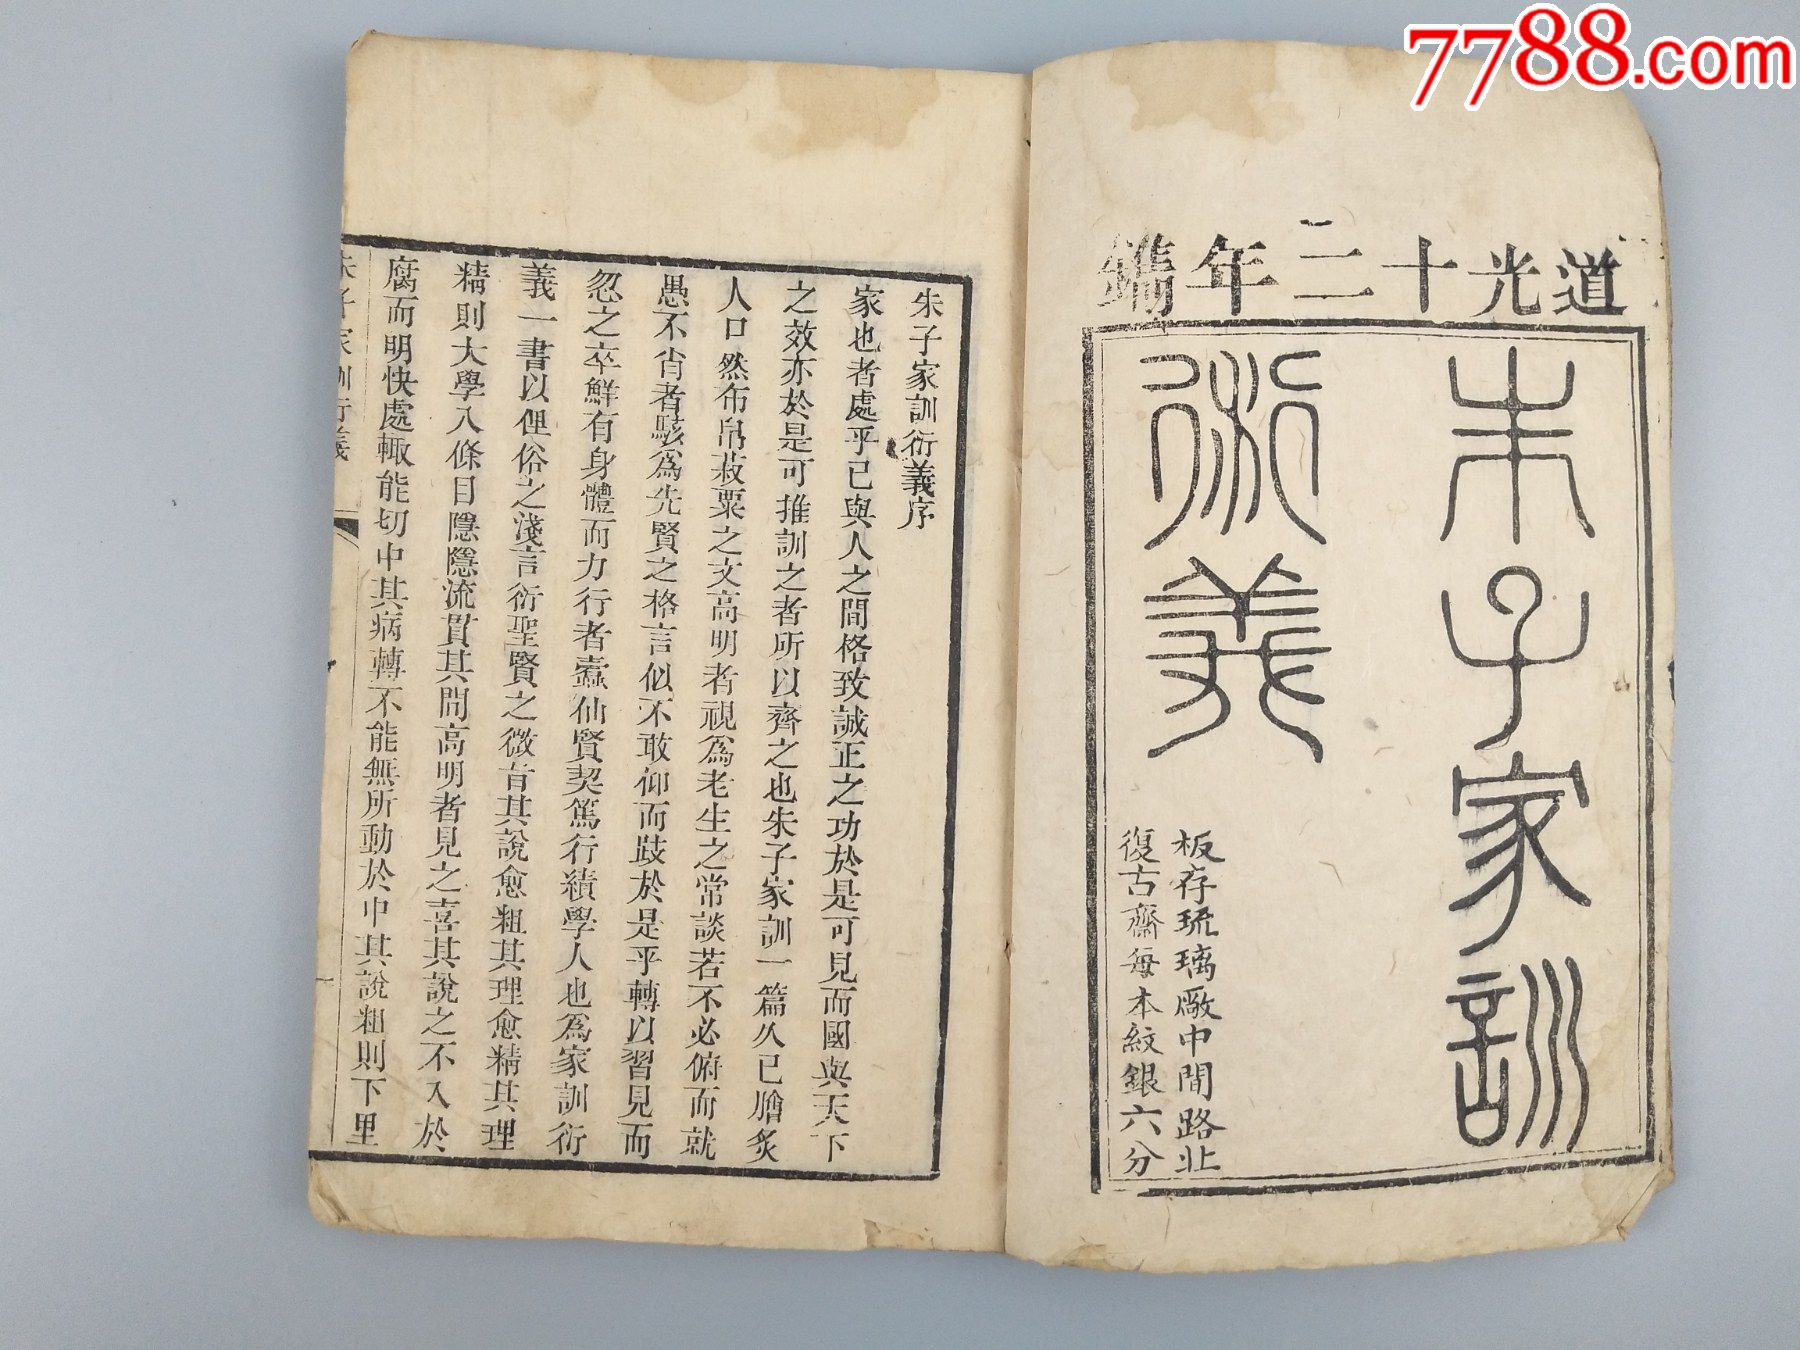 7788.com
道光十三年鐫
朱子家訓
衍義
板存琉璃廠中間路北
復古齋每本紋銀六分
朱子家訓衍義序
家也者處乎已與人之間格致誠正之功於是可見而國與天下
之效亦於是可推訓之者所以齊之也朱子家訓一篇久已膾炙
人口然布帛菽粟之文高明者視爲老生之常談若不必俯而就
愚不肖者駭爲先賢之格言似不敢仰而跂於是乎轉以習見而
忽之卒鮮有身體而力行者壺仙賢契篤行績學人也爲家訓衍
義一書以俚俗之淺言衍聖賢之微旨其說愈粗其理愈精其理
精則大學八條目隱隱流貫其間高明者見之喜其說之不入於
腐而明快處輒能切中其病轉不能無所動於中其說粗則下里
朱子家訓衍義